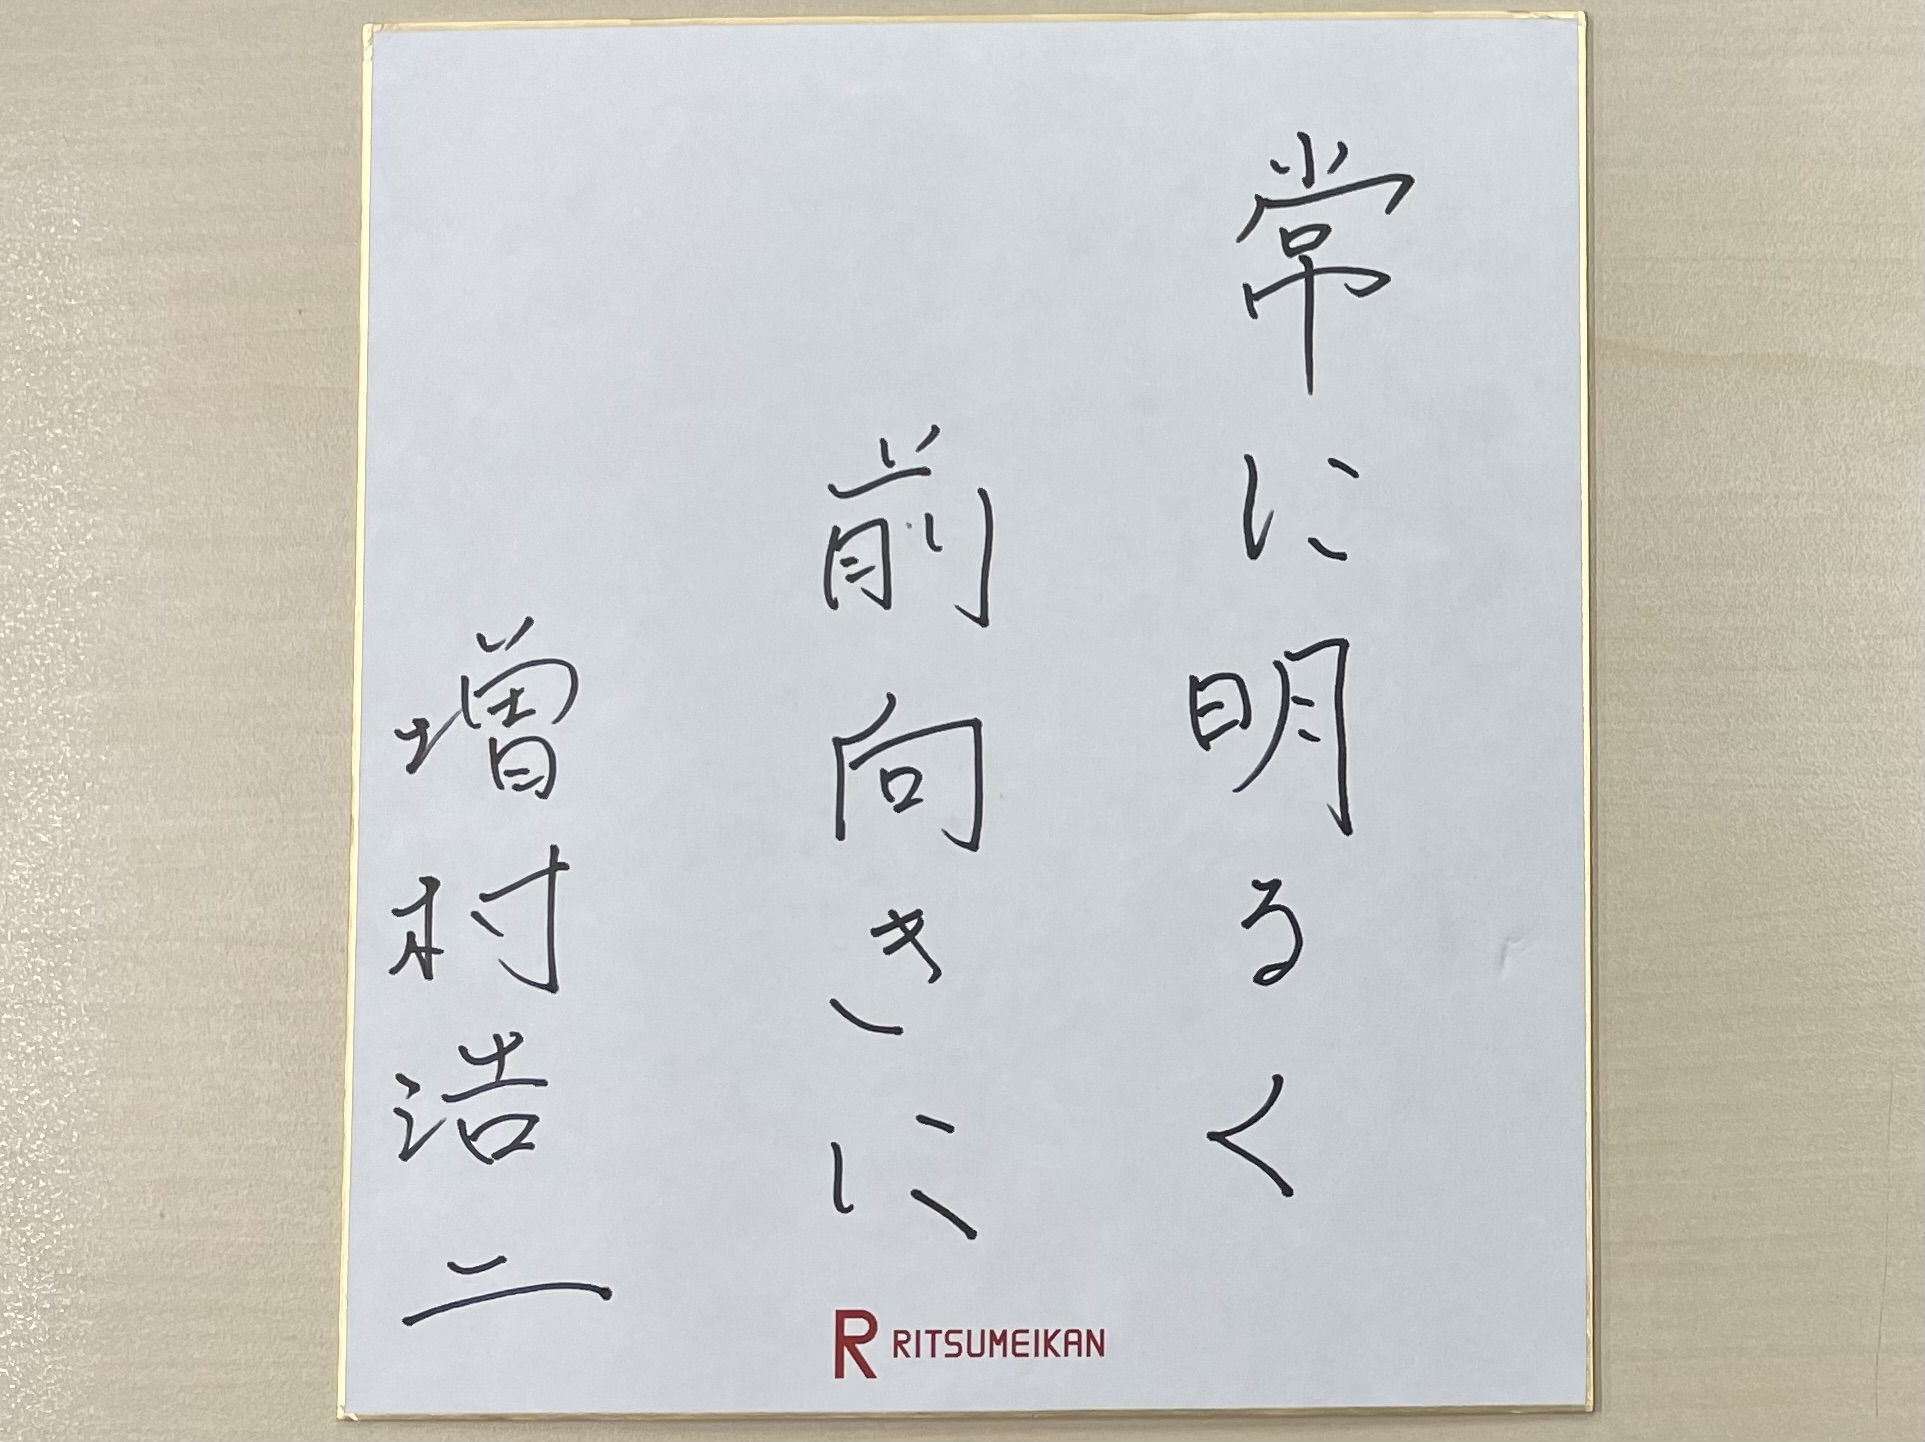 常に明るく
前向きに
増村浩二
R RITSUMEIKAN